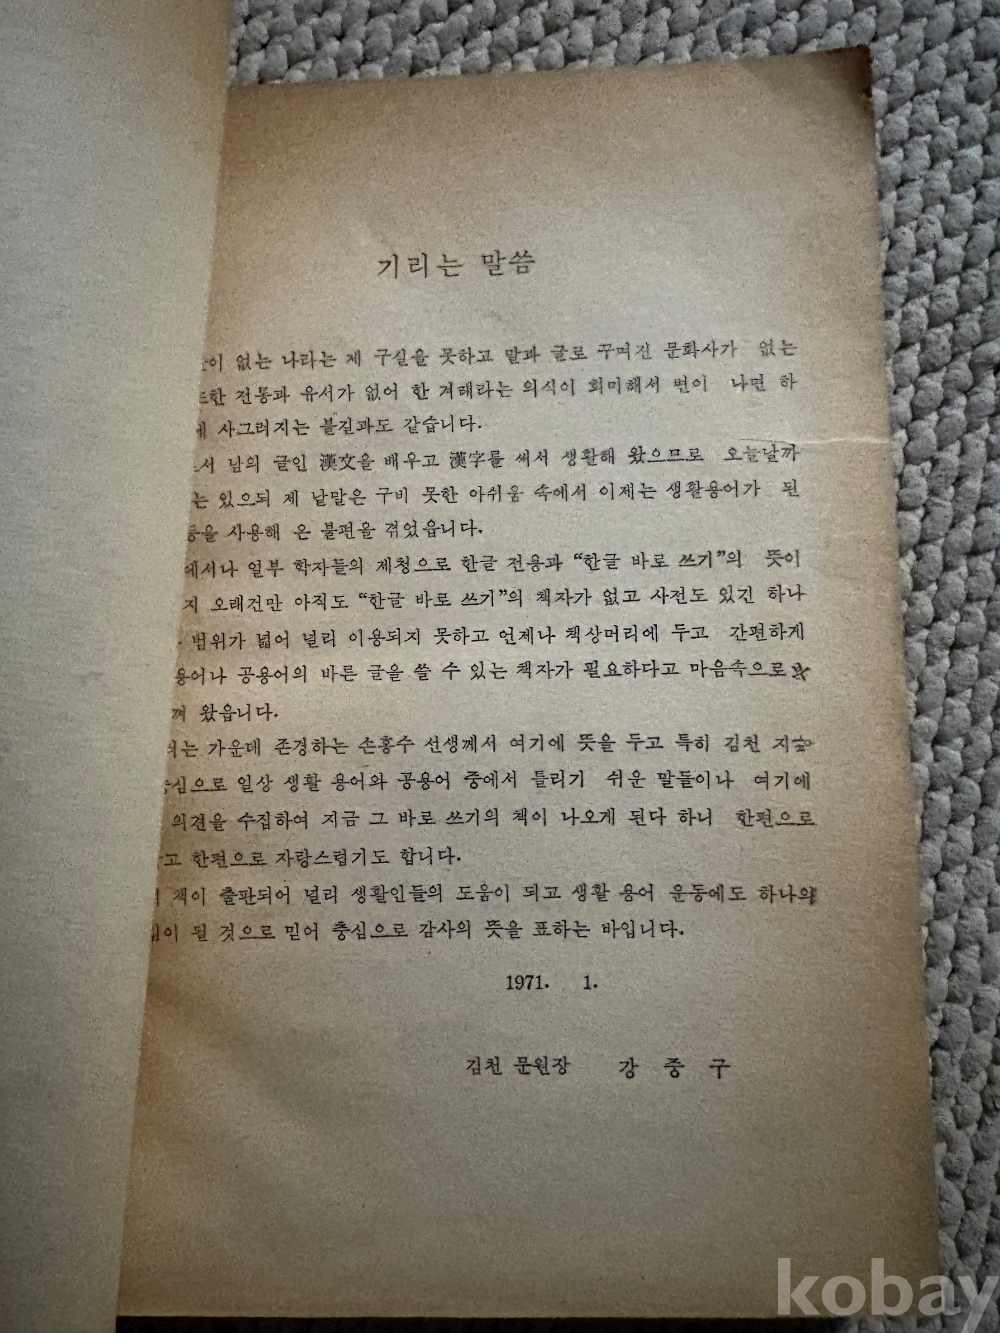 기리는 말씀
없는 나라는 제 구실을 못하고 말과 글로 꾸며진 문화사가 없는
전통과 유서가 없어 한 겨래라는 의식이 희미해서 변이 나면 하
사그러지는 불길과도 같습니다.
남의 글인 漢文을 배우고 漢字를 써서 생활해 왔으므로 오늘날까
있으되 제 낱말은 구비 못한 아쉬움 속에서 이제는 생활용어가 된
사용해 온 불편을 겪었읍니다.
일부 학자들의 제청으로 한글 전용과 “한글 바로 쓰기”의 뜻이
오래건만 아직도 “한글 바로 쓰기”의 책자가 없고 사전도 있긴 하나
범위가 넓어 널리 이용되지 못하고 언제나 책상머리에 두고 간편하게
공용어의 바른 글을 쓸 수 있는 책자가 필요하다고 마음속으로
왔읍니다.
가운데 존경하는 손홍수 선생께서 여기에 뜻을 두고 특히 김천 지
일상 생활 용어와 공용어 중에서 틀리기 쉬운 말들이나 여기에
의견을 수집하여 지금 그 바로 쓰기의 책이 나오게 된다 하니 한편으로
한편으로 자랑스럽기도 합니다.
책이 출판되어 널리 생활인들의 도움이 되고 생활 용어 운동에도 하나의
될 것으로 믿어 충심으로 감사의 뜻을 표하는 바입니다.
1971. 1.
김천 문원장 강 중 구
kobay